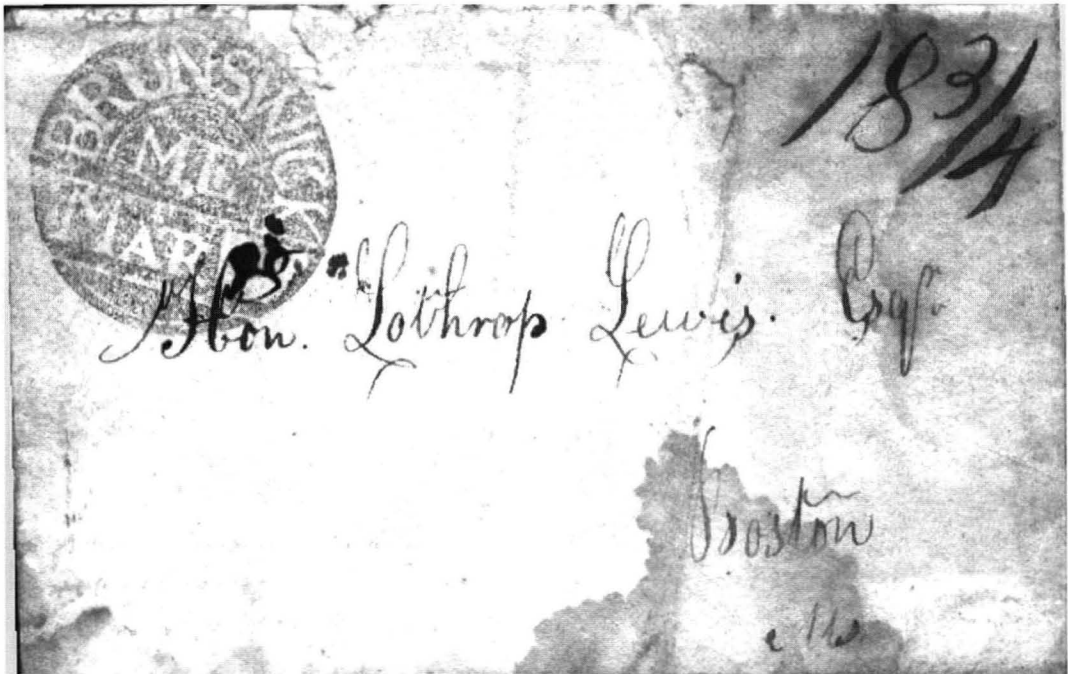 BRUNSWICK
ME
MAR
18 3/4
Hon. Lothrop Lewis. Esqr
Boston